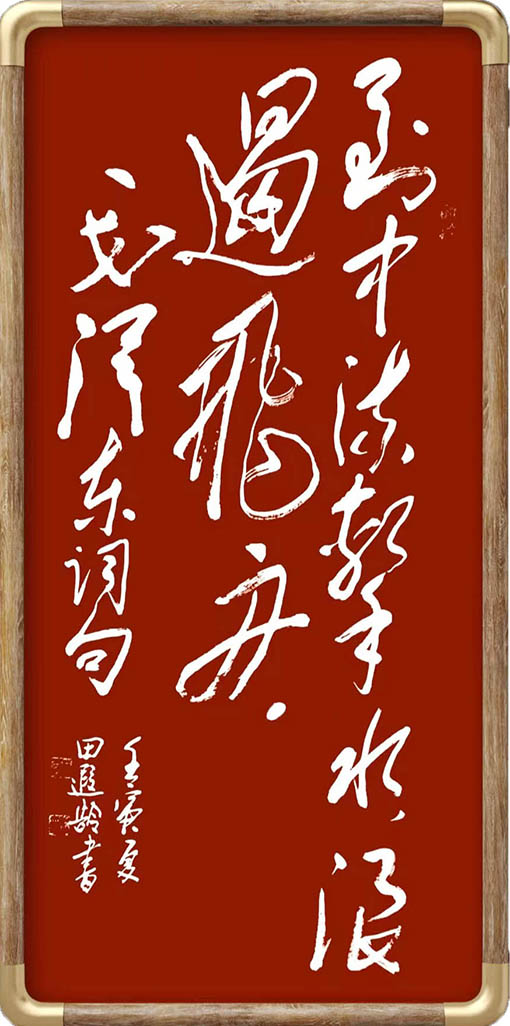 到中流击水浪
遏飞舟
毛泽东词句
壬寅夏
田遐龄书